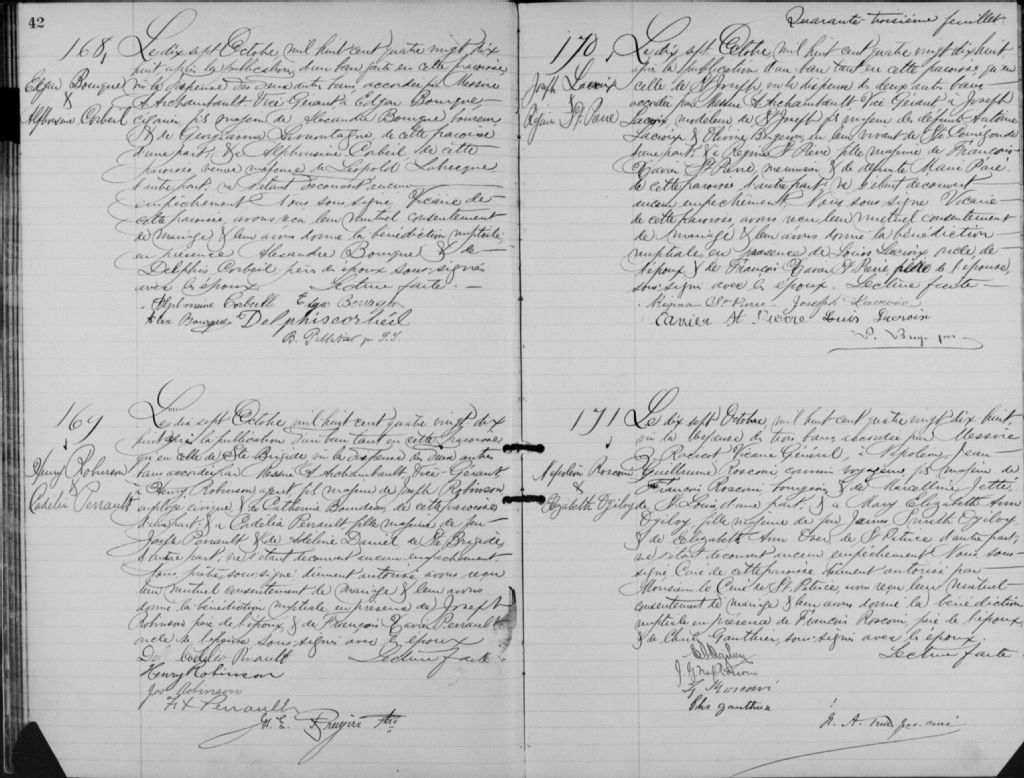 42
168,
Edgar Bourque
&
Alphonsine Corbeil
Le dix sept Octobre mil huit cent quatre vingt dix
huit après la publication d'un ban faite en cette paroisse
vu la dispense des deux autres bans, accordée par Messire
Archambault Vicé Gérant à Edgar Bourque,
fils majeur de Alexandre Bourque
& de Georgianna Lamontagne, de cette paroisse
d'une part, & Alphonsine Corbeil de cette
paroisse, veuve majeure de Léopold Labrecque
d'autre part, ne s'étant découvert aucun
empêchement Nous sous-signé Vicaire de
cette paroisse, avons reçu leur mutuel consentement
de mariage & leur avons donné la bénédiction nuptiale,
en présence Alexandre Bourque & de
Delphis Corbeil pères des époux sous-signés
avec les époux. Lecture faite. —
Alphonsine Corbeille Edgar Bourque
Alex Bourque Delphis corbieil
B. Pelletier
169
Henry Robinson
&
Cordélia Perrault
Le dix sept Octobre mil huit cent quatre vingt dix
huit après la publication d'un ban tant en cette paroisse
qu'en celle de Ste Brigide vu la dispense de deux autres
bans accordée par Messire A Archambault, Vicé-Gérant,
à Henry Robinson agent, fils majeur de Joseph Robinson
employé civique & de Catherine Boudreau, de cette paroisse
d'une part, & à Cordélia Perrault fille majeure de feu
Joseph Perrault & de Adeline Daniel de Ste Brigide
d'autre part, ne s'étant découvert aucun empêchement
Nous, prêtre sous-signé dûment autorisé avons reçu
leur mutuel consentement de mariage & leur avons
donné la bénédiction nuptiale en présence de Joseph
Robinson père de l'époux & de François Xavier Perrault
oncle de l'épouse sous-signés avec les époux
Lecture faite.
Henry Robinson
Jos Robinson
F. X Perrault
Bruyère
Quarante-troisième feuillet
170,
Joseph Lacroix
&
Régina St. Pierre
Le dix sept Octobre mil huit cent quatre vingt dix huit
après la publication d'un ban tant en cette paroisse, qu'en
celle de St Joseph, vu la dispense de deux autres bans
accordée par Messire A Archambault Vicé Gérant à Joseph
Lacroix modeleur de St Joseph fils majeur de défunts Antoine
Lacroix & Olivine Bergeron, en leur vivant de Ste Cunégonde
d'une part, & à Régina St Pierre fille majeure de François-
Xavier St Pierre, menuisier & de défunte Marie Paré
de cette paroisse d'autre part, ne s'étant découvert
aucun empêchement, Nous sous-signé Vicaire
de cette paroisse, avons reçu leur mutuel consentement
de mariage & leur avons donné la bénédiction
nuptiale en présence de Louis Lacroix oncle de
l'époux & de François Xavier St Pierre père de l'épouse,
sous-signés avec les époux. Lecture faite —
Régina St Pierre Joseph Lacroix
Xavier St Pierre Louis Lacroix
171
Napoléon Rosconi
&
Elizabeth Ogilvy
Le dix sept Octobre, mil huit cent quatre vingt dix huit,
vu la dispense de trois bans, accordée par Messire
Racicot Vicaire Général, à Napoléon, Jean-
Guillaume Rosconi commis voyageur fils majeur de
François Rosconi, bourgeois, & de Marcelline Jetté
de St Louis d'une part, & à Mary Elizabeth Ann
Ogilvy, fille majeure de feu James Smith Ogilvy
& de Elizabeth Ann de St Patrice d'autre part,
ne s'étant découvert aucun empêchement Nous, sous-
signé Curé de cette paroisse dûment autorisé par
Monsieur le Curé de St. Patrice avons reçu leur mutuel
consentement de mariage & leur avons donné la bénédiction
nuptiale en présence de François Rosconi père de l'époux
& de Charles Gauthier, sous-signés avec les époux.
Lecture faite —
Ogilvy
J. G Nap Rosconi
F Rosconi
Chs gauthier
curé